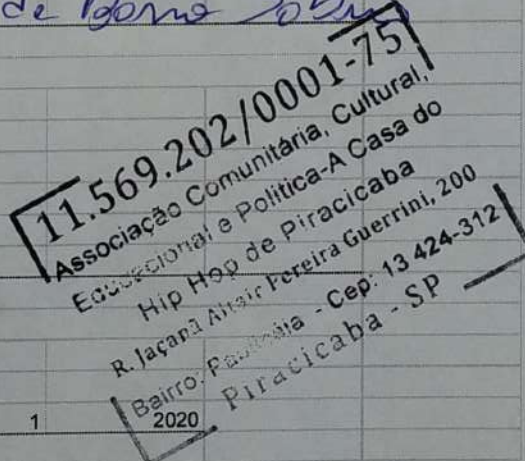 de
11.569.202/0001-75
Associação Comunitária, Cultural,
Educacional e Politica-A Casa do
Hip Hop de Piracicaba
R. Jaçanã Altair Pereira Guerrini, 200
Bairro: - Cep: 13 424-312
Piracicaba - SP
1 2020